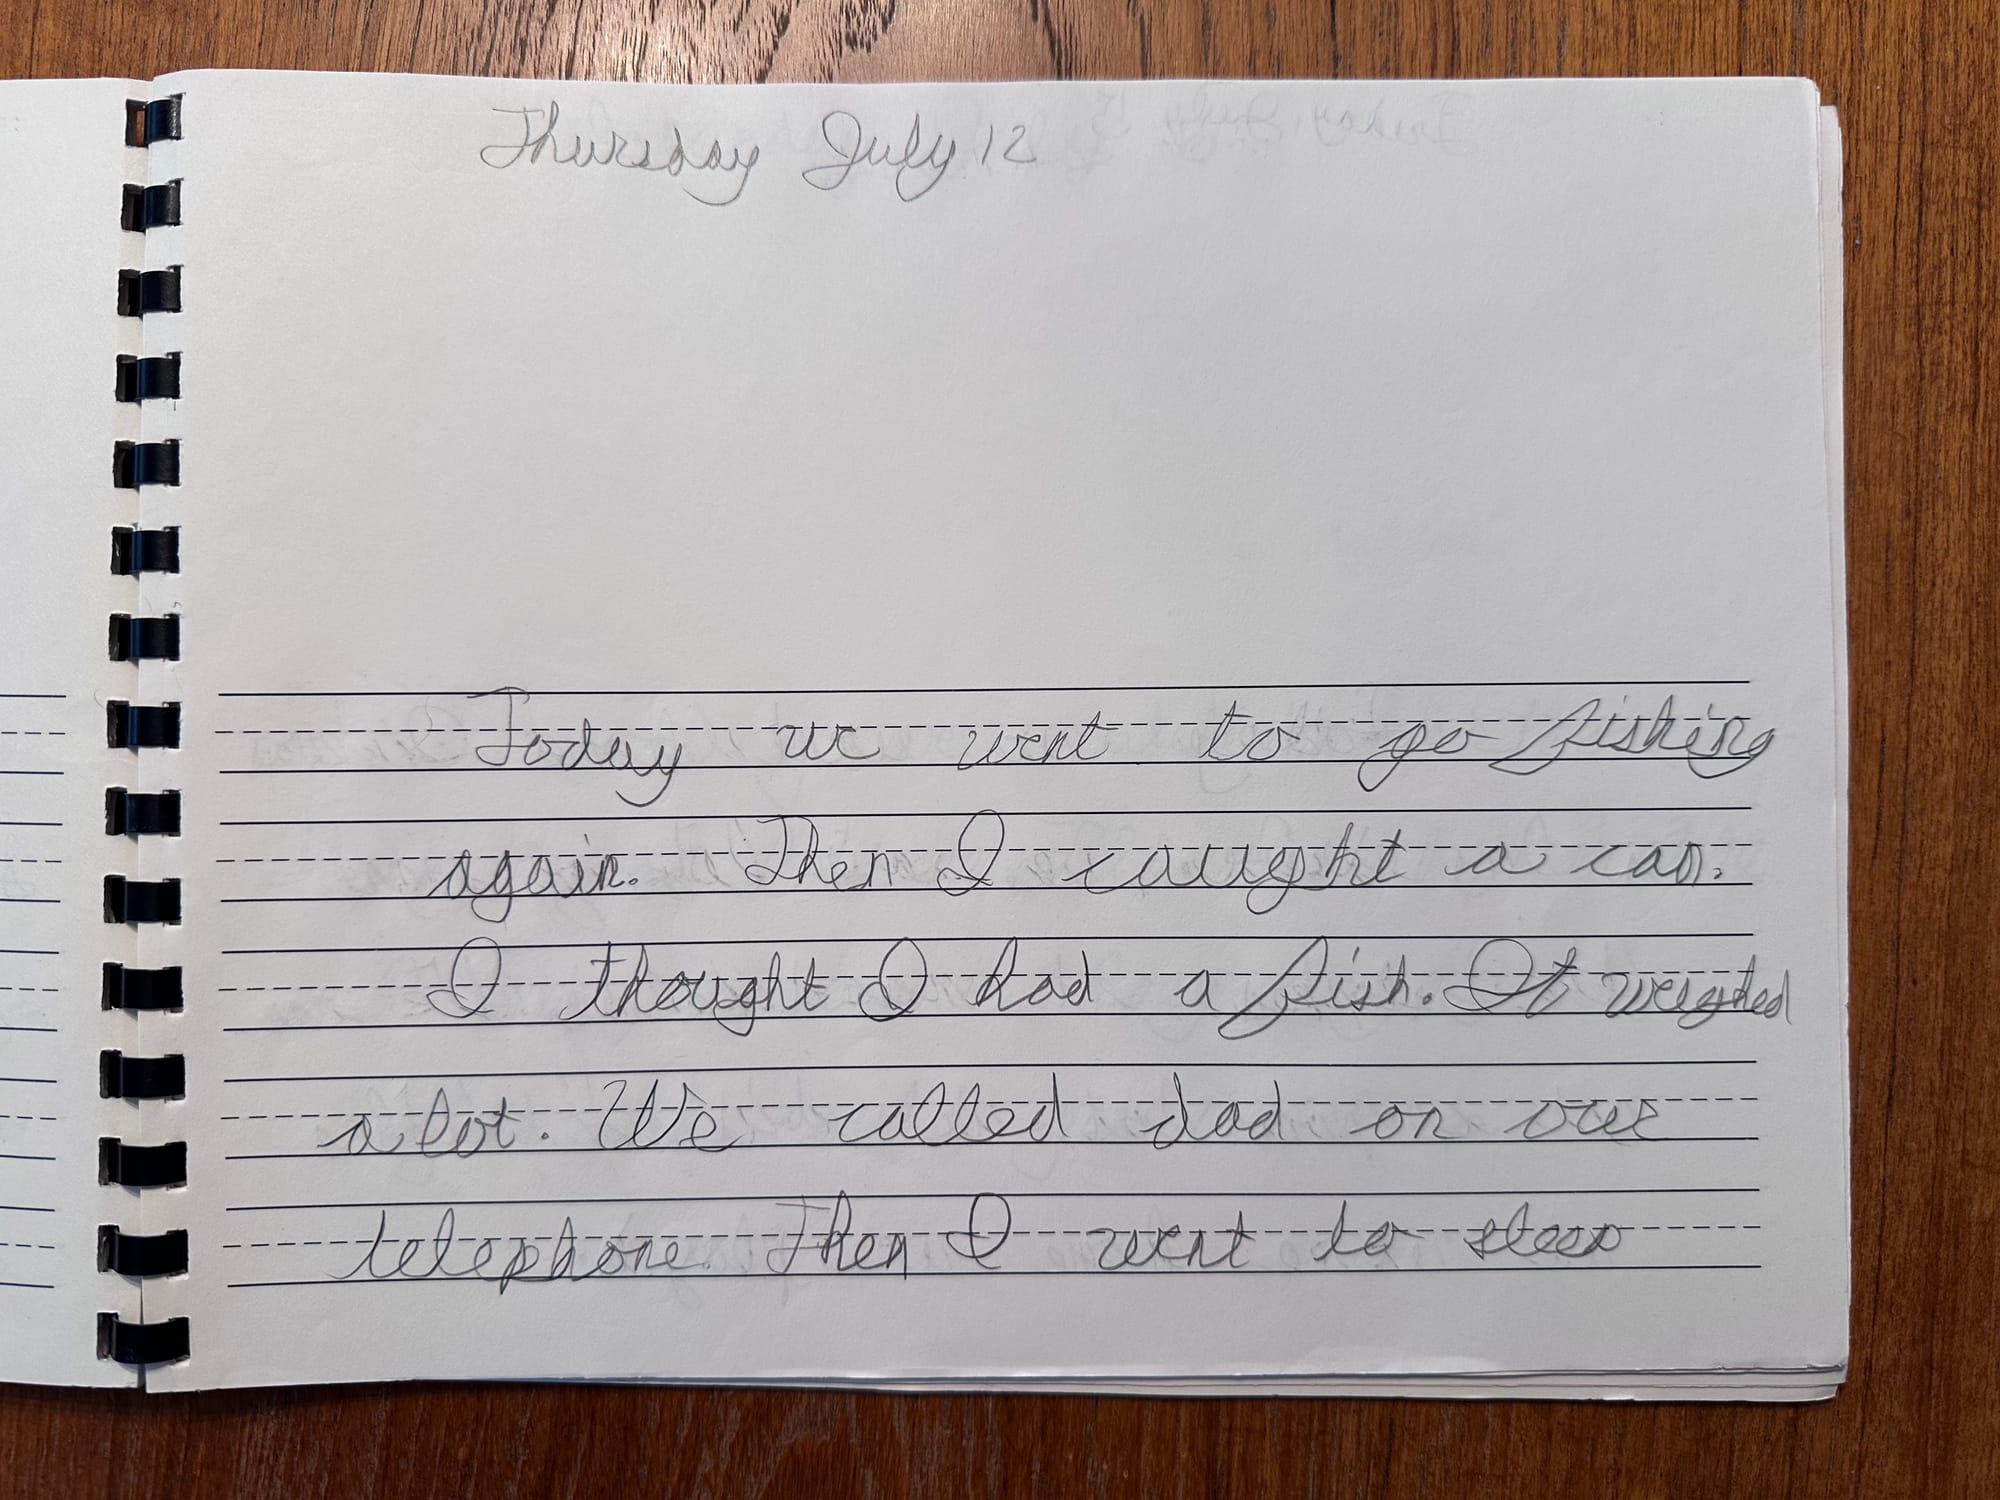 Thursday July 12
Today we went to go fishing
again. Then I caught a can.
I thought I had a fish. It weighed
a lot. We called dad on our
telephone. Then I went to sleep